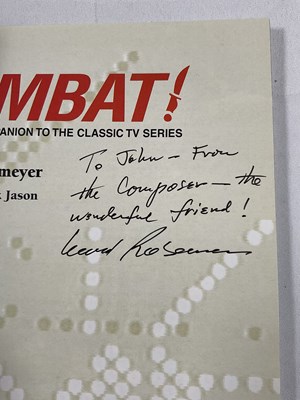 MBAT!
PANION TO THE CLASSIC TV SERIES
meyer
Jason
To John – From
the Composer – the
wonderful friend!
Leonard Rosenman